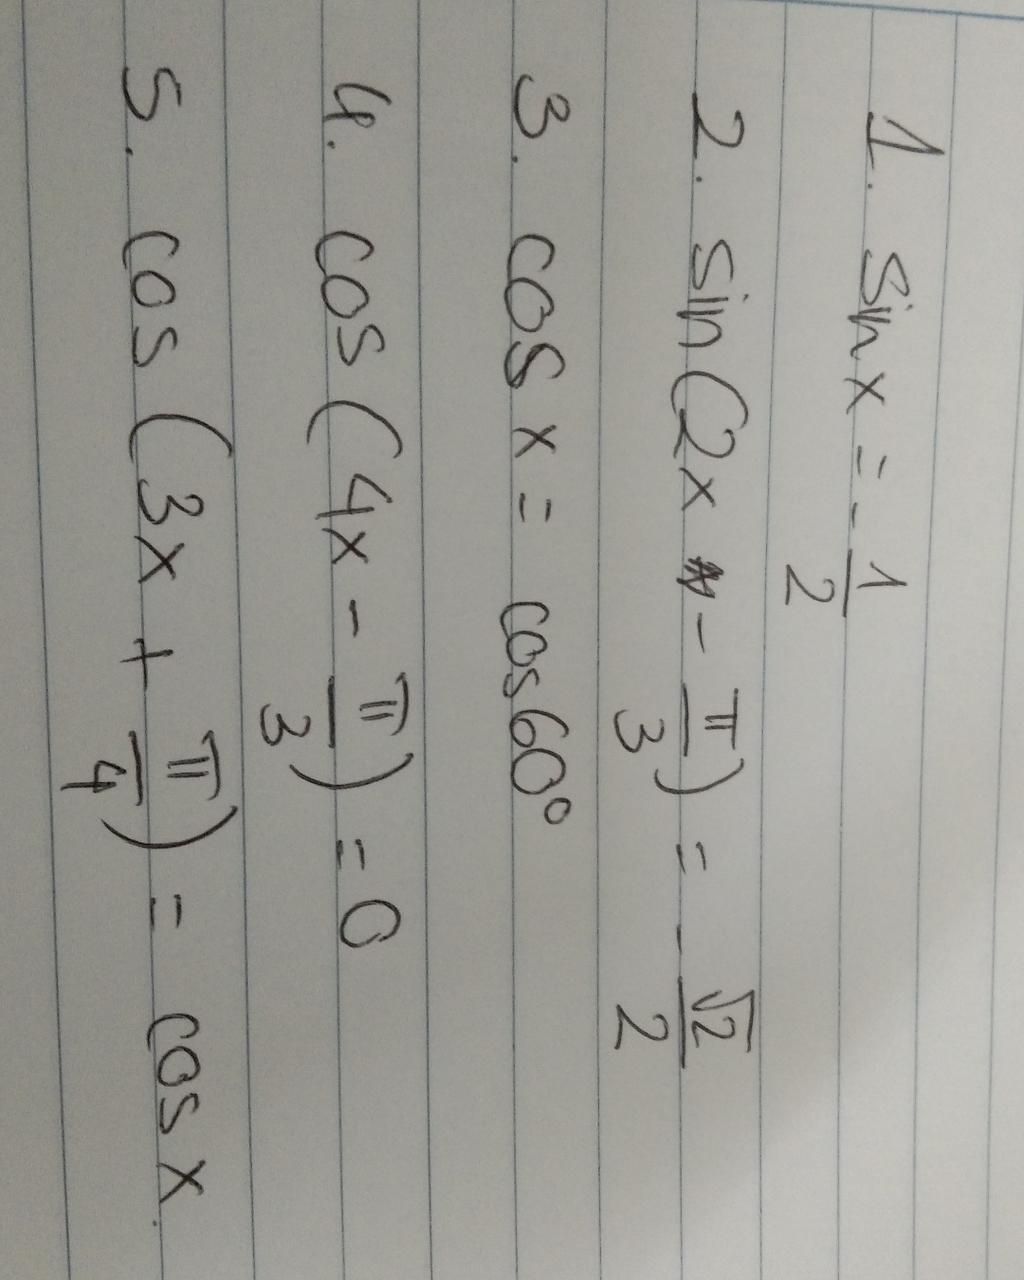 1. sin x = - 1/2
2. sin (2x - π/3) = - √2/2
3. cos x = cos 60°
4. cos (4x - π/3) = 0
5. cos (3x + π/4) = cos x